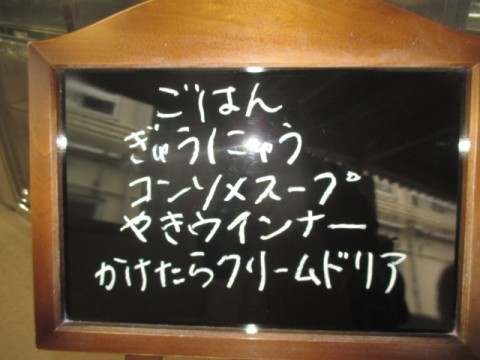 ごはん
ぎゅうにゅう
コンソメスープ
やきウインナー
かけたらクリームドリア